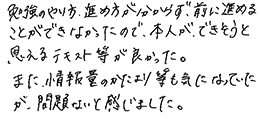 勉強のやり方、進め方が分からず、前に進める
ことができなかったので、本人が、できそうと
思えるテキスト等が良かった。
また、情報量のかたより等も気になっていた
が、問題ないと感じました。